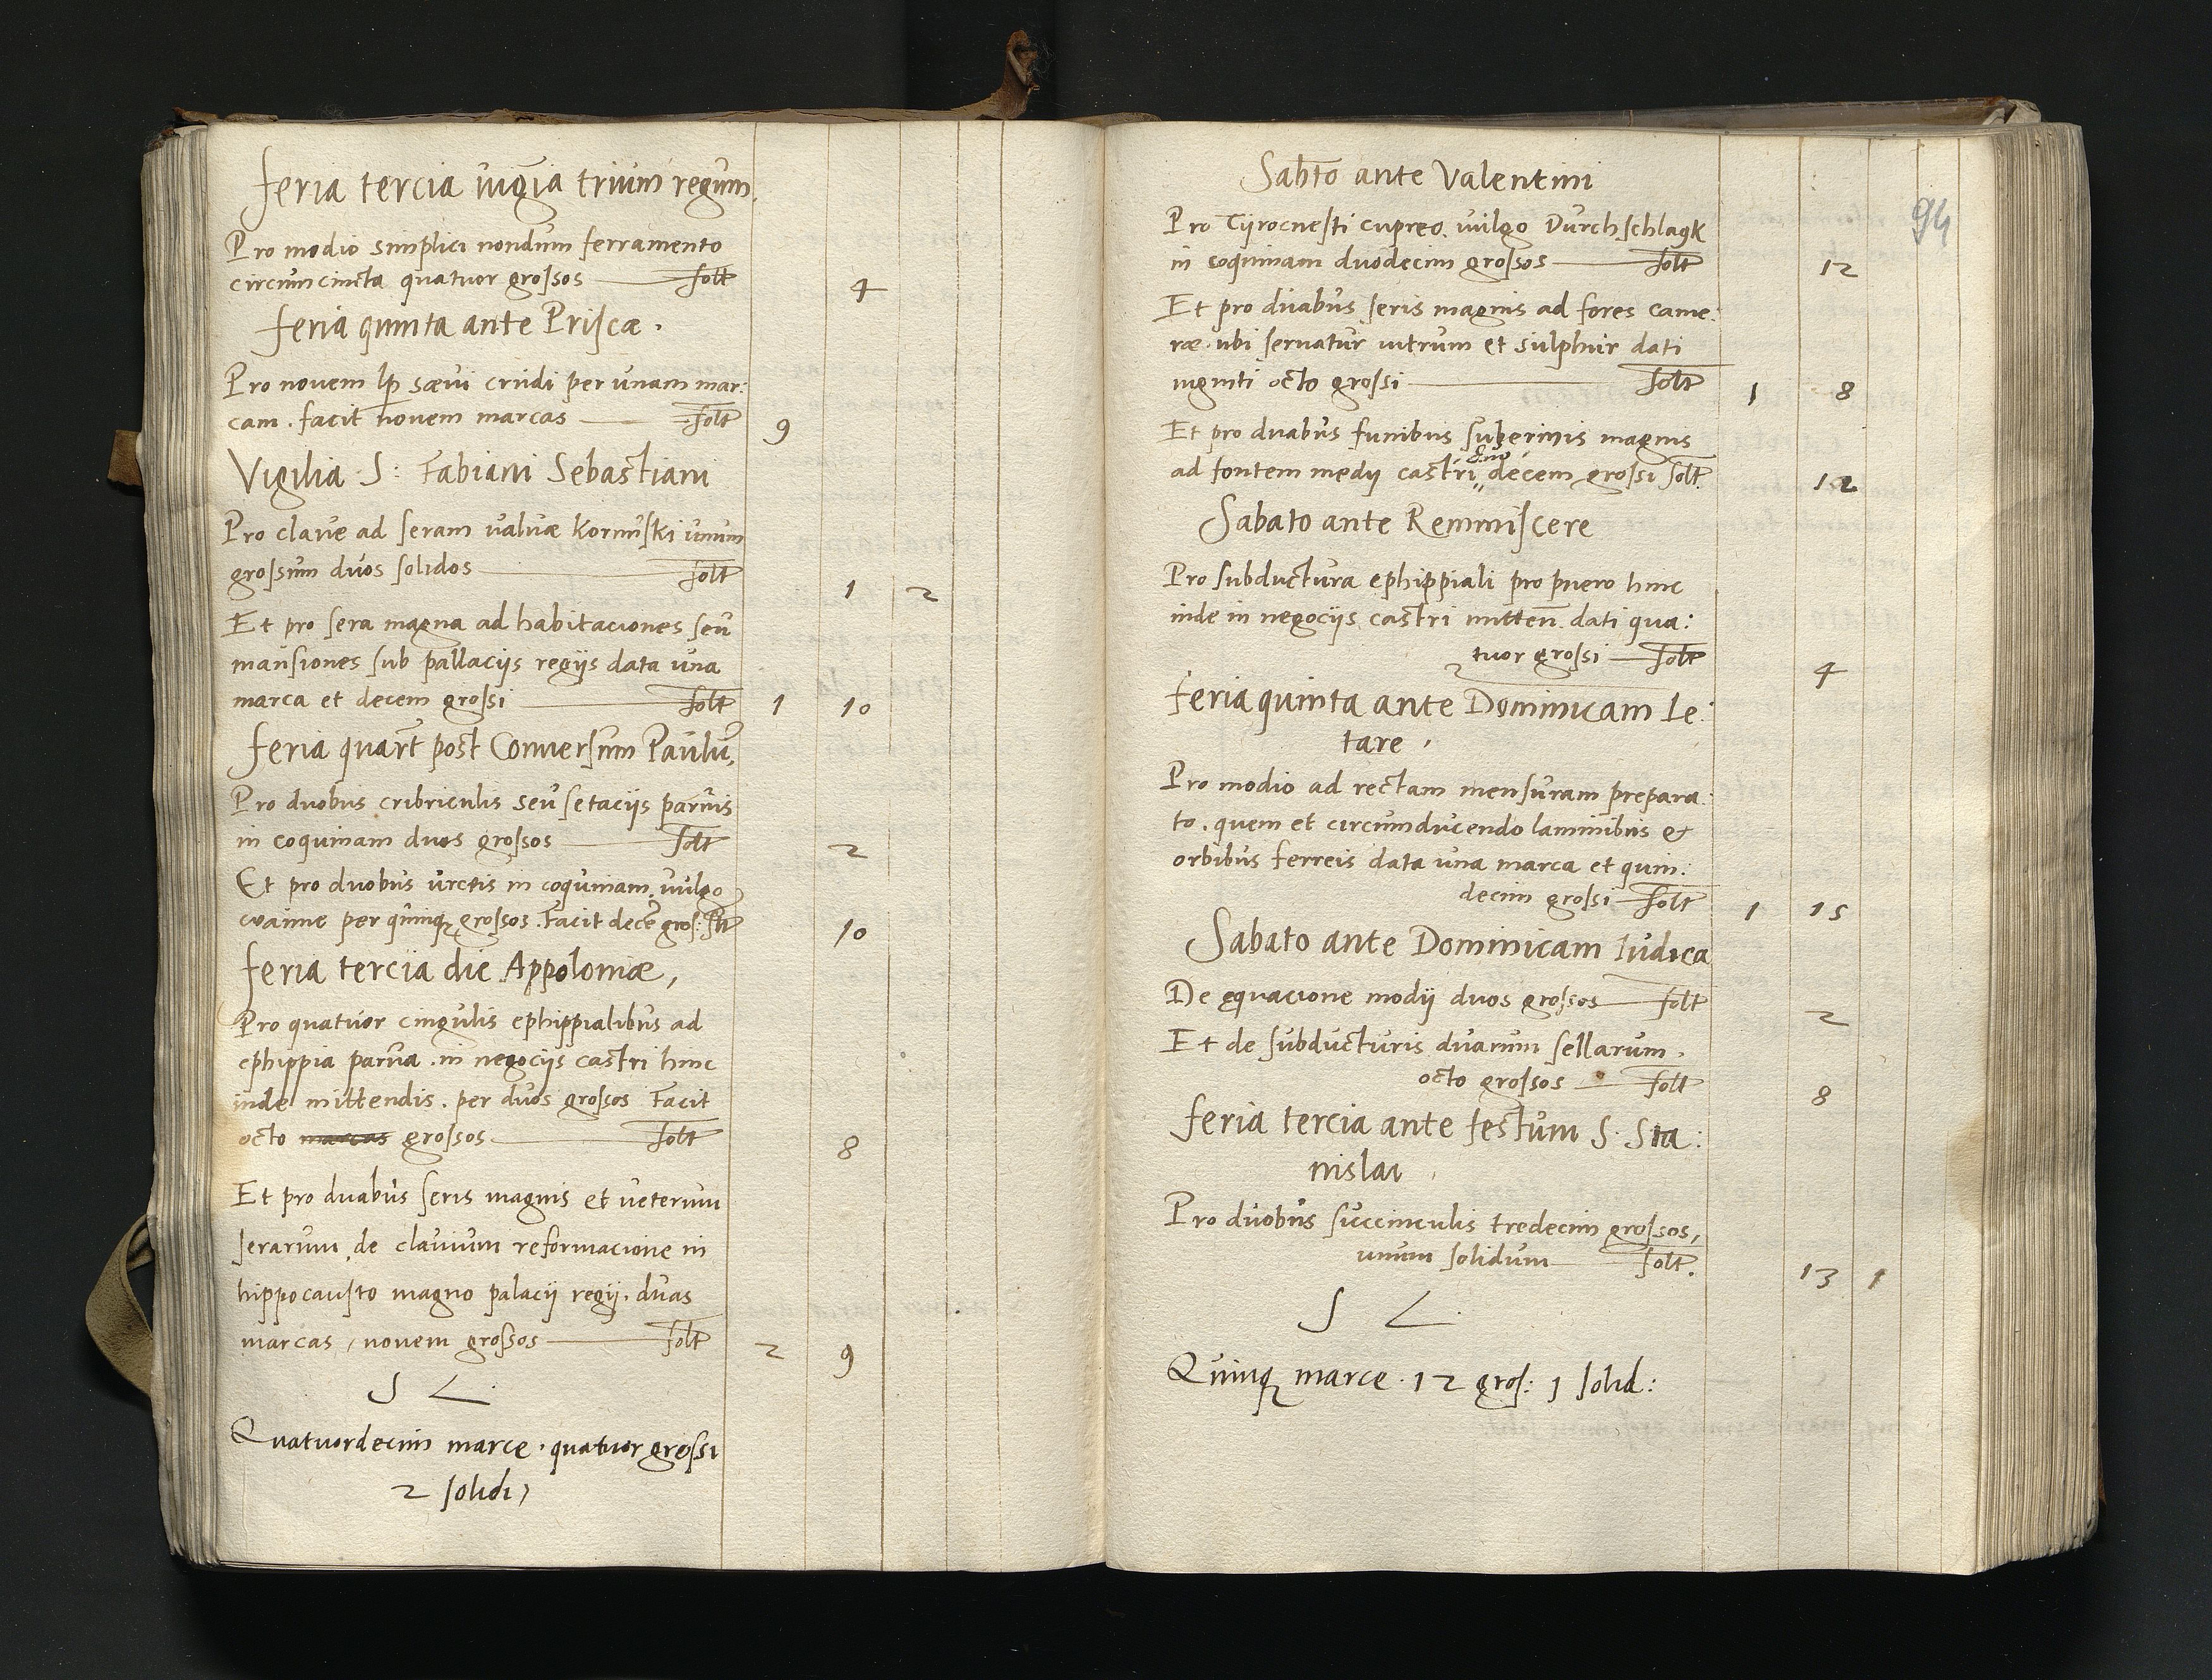 feria tercia vigia trium regum
Pro modio simplici nondum ferramento
circumcincta quatuor grossos solt 4
feria quinta ante Priscæ.
Pro novem lp sævi crudi per unam mar:
cam. facit novem marcas solt 9
Vigilia S: Fabiani Sebastiani
Pro clave ad seram valvæ Kornuski unum
grossum duos solidos solt 1 2
Et pro sera magna ad habitaciones seu
mansiones sub pallacijs regijs data una
marca et decem grossi solt 1 10
feria quart post Conversum Paulu,
Pro duobus cribriculis seu setacijs parvis
in coquinam duos grossos solt 2
Et pro duobus urctis in coquinam, vulgo
waime per quinq grossos. Facit dece gros: slt 10
feria tercia die Appoloniæ,
Pro quatuor cingulis ephippialibus ad
ephippia parva. in negocijs castri hinc
inde mittendis. per duos grossos Facit
octo marcas grossos solt 8
Et pro duabus seris magnis et veterum
serarum, de clavium reformacione in
hippocausto magno palacij regij. duas
marcas, novem grossos solt 2 9
S L
Quatuordecim marce. quatuor grossi
2 solidi,
94
Sabto ante Valentini
Pro Tyrocnesti cupreo. vulgo Durchschlagk
in coquinam duodecim grossos solt 12
Et pro duabus seris magnis ad fores came:
ræ. ubi servatur nitrum et sulphur dati
viginti octo grossi solt 1 8
Et pro duabus funibus suberinis magnis
ad fontem medij castri duo decem grossi solt. 12
Sabato ante Reminiscere
Pro subductura ephippiali pro puero hinc
inde in negocijs castri mitten dati qua:
tuor grossi solt 4
feria quinta ante Dominicam Le:
tare,
Pro modio ad rectam mensuram prepara:
to. quem et circumducendo laminibus &
orbibus ferreis data una marca et quin:
decim grossi solt 1 15
Sabato ante Dominicam Iudica
De equacione modij duos grossos solt 2
Et de subducturis duarum sellarum.
octo grossos solt 8
feria tercia ante festum S. Sta:
nislai
Pro duobus succinculis tredecim grossos,
unum solidum solt. 13 1
S L
Quinq marce. 12 gros: 1 solid: